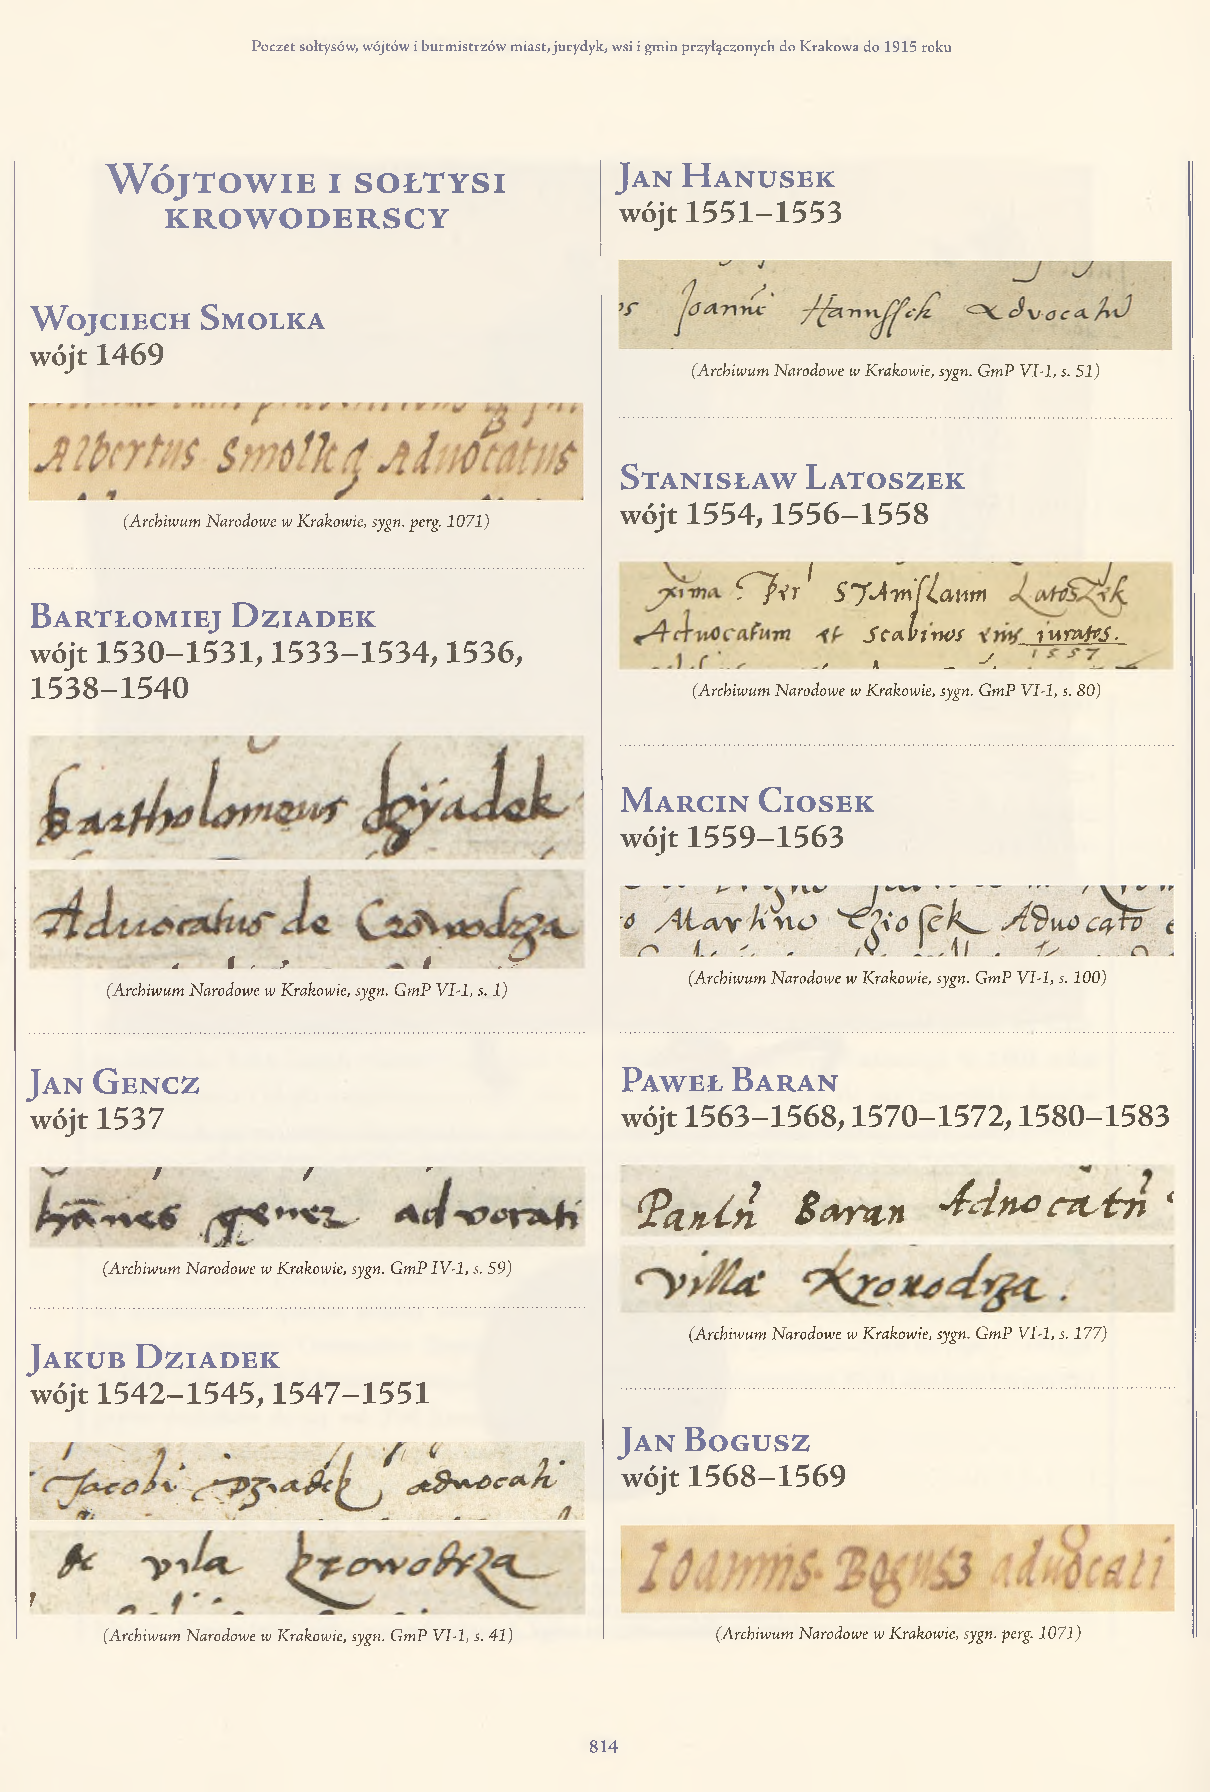 Poczet sołtysów, wójtów i burmistrzów miast, jurydyk, wsi i gmin przyłączonych do Krakowa do 1915 roku
Wójtowie i sołtysi
krowoderscy
Wojciech Smolka
wójt 1469
Albertus Smolka Aduocatus
(Archiwum Narodowe w Krakowie, sygn. perg. 1071)
Bartłomiej Dziadek
wójt 1530–1531, 1533–1534, 1536,
1538–1540
Bartholomeus dzyadek
Aduocatus de Crowodrza
(Archiwum Narodowe w Krakowie, sygn. GmP VI-1, s. 1)
Jan Gencz
wójt 1537
gencz advocati
(Archiwum Narodowe w Krakowie, sygn. GmP IV-1, s. 59)
Jakub Dziadek
wójt 1542–1545, 1547–1551
Jacobi Dziadek advocati
de vila krowodrza
(Archiwum Narodowe w Krakowie, sygn. GmP VI-1, s. 41)
Jan Hanusek
wójt 1551–1553
Hanussek
(Archiwum Narodowe w Krakowie, sygn. GmP VI-1, s. 51)
Stanisław Latoszek
wójt 1554, 1556–1558
xima Per STAnislaum Latoszek
Advocatum et Scabinos eius iuratos.
1557
(Archiwum Narodowe w Krakowie, sygn. GmP VI-1, s. 80)
Marcin Ciosek
wójt 1559–1563
o Martino Cziosek Aduocato
(Archiwum Narodowe w Krakowie, sygn. GmP VI-1, s. 100)
Paweł Baran
wójt 1563–1568, 1570–1572, 1580–1583
Baran
Villæ Krouodrza.
(Archiwum Narodowe w Krakowie, sygn. GmP VI-1, s. 177)
Jan Bogusz
wójt 1568–1569
Ioannis Bogusz aduocati
(Archiwum Narodowe w Krakowie, sygn. perg. 1071)
814